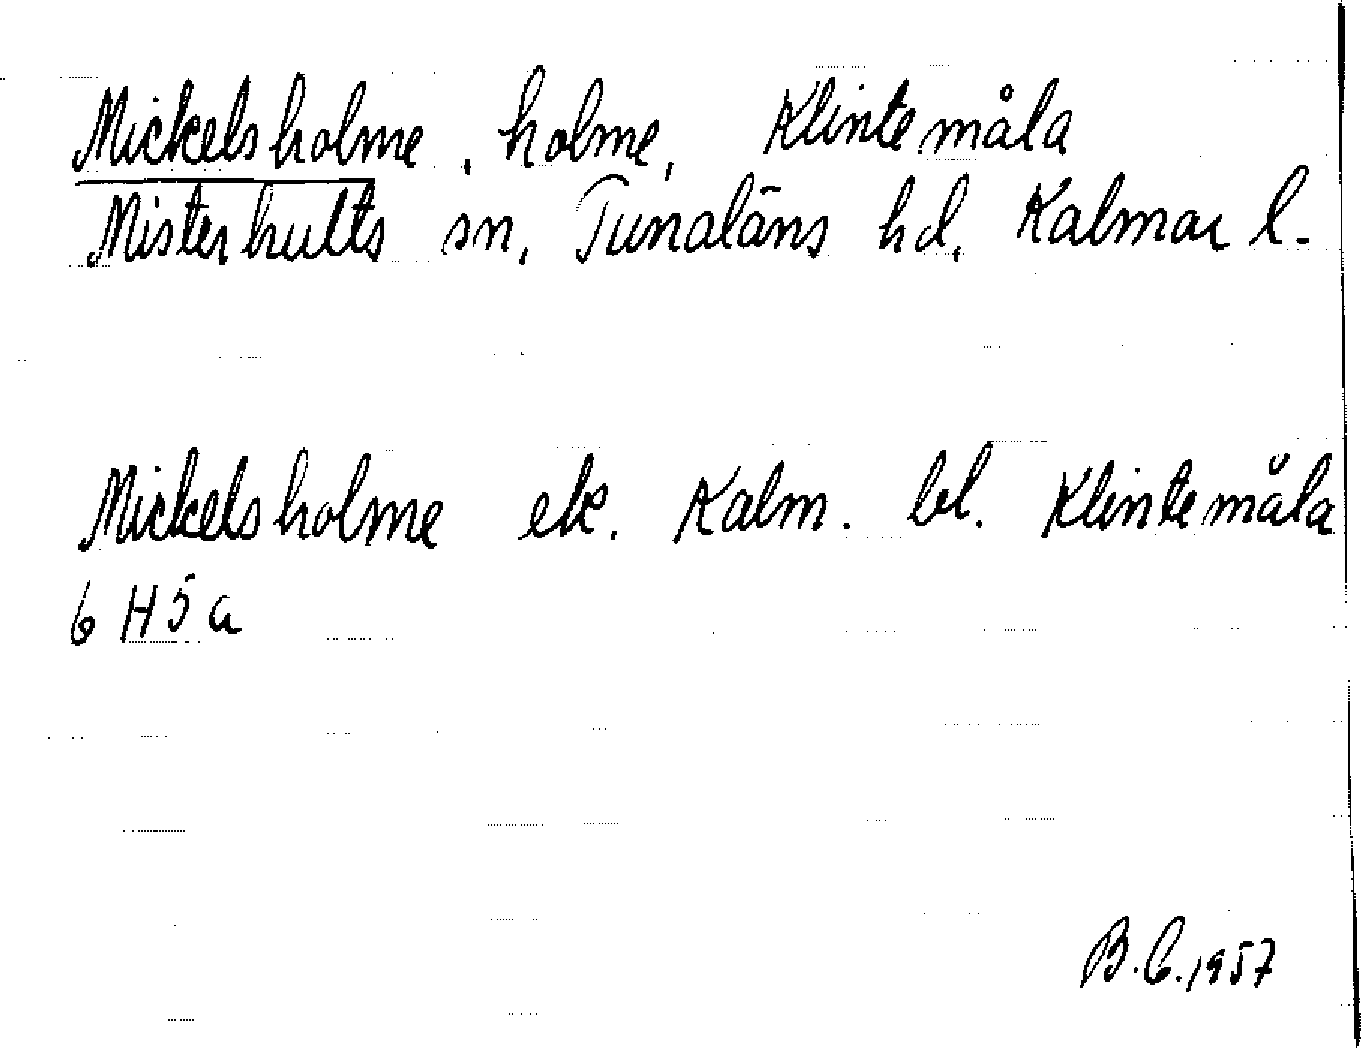 Mickelsholme, holme, Klintemåla
Misterhults sn, Tunaläns hd, Kalmar l.
Mickelsholme ek. Kalm. bl. Klintemåla
6 H 5 a
B.C. 1957